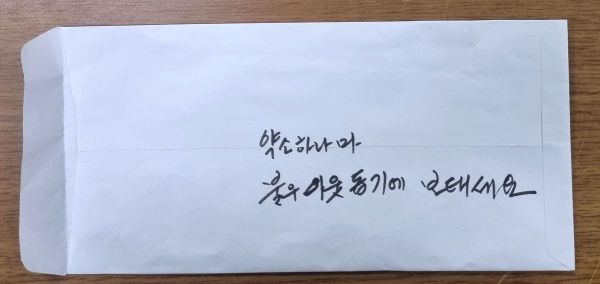 약소하나마
불우이웃 동기에 보태세요